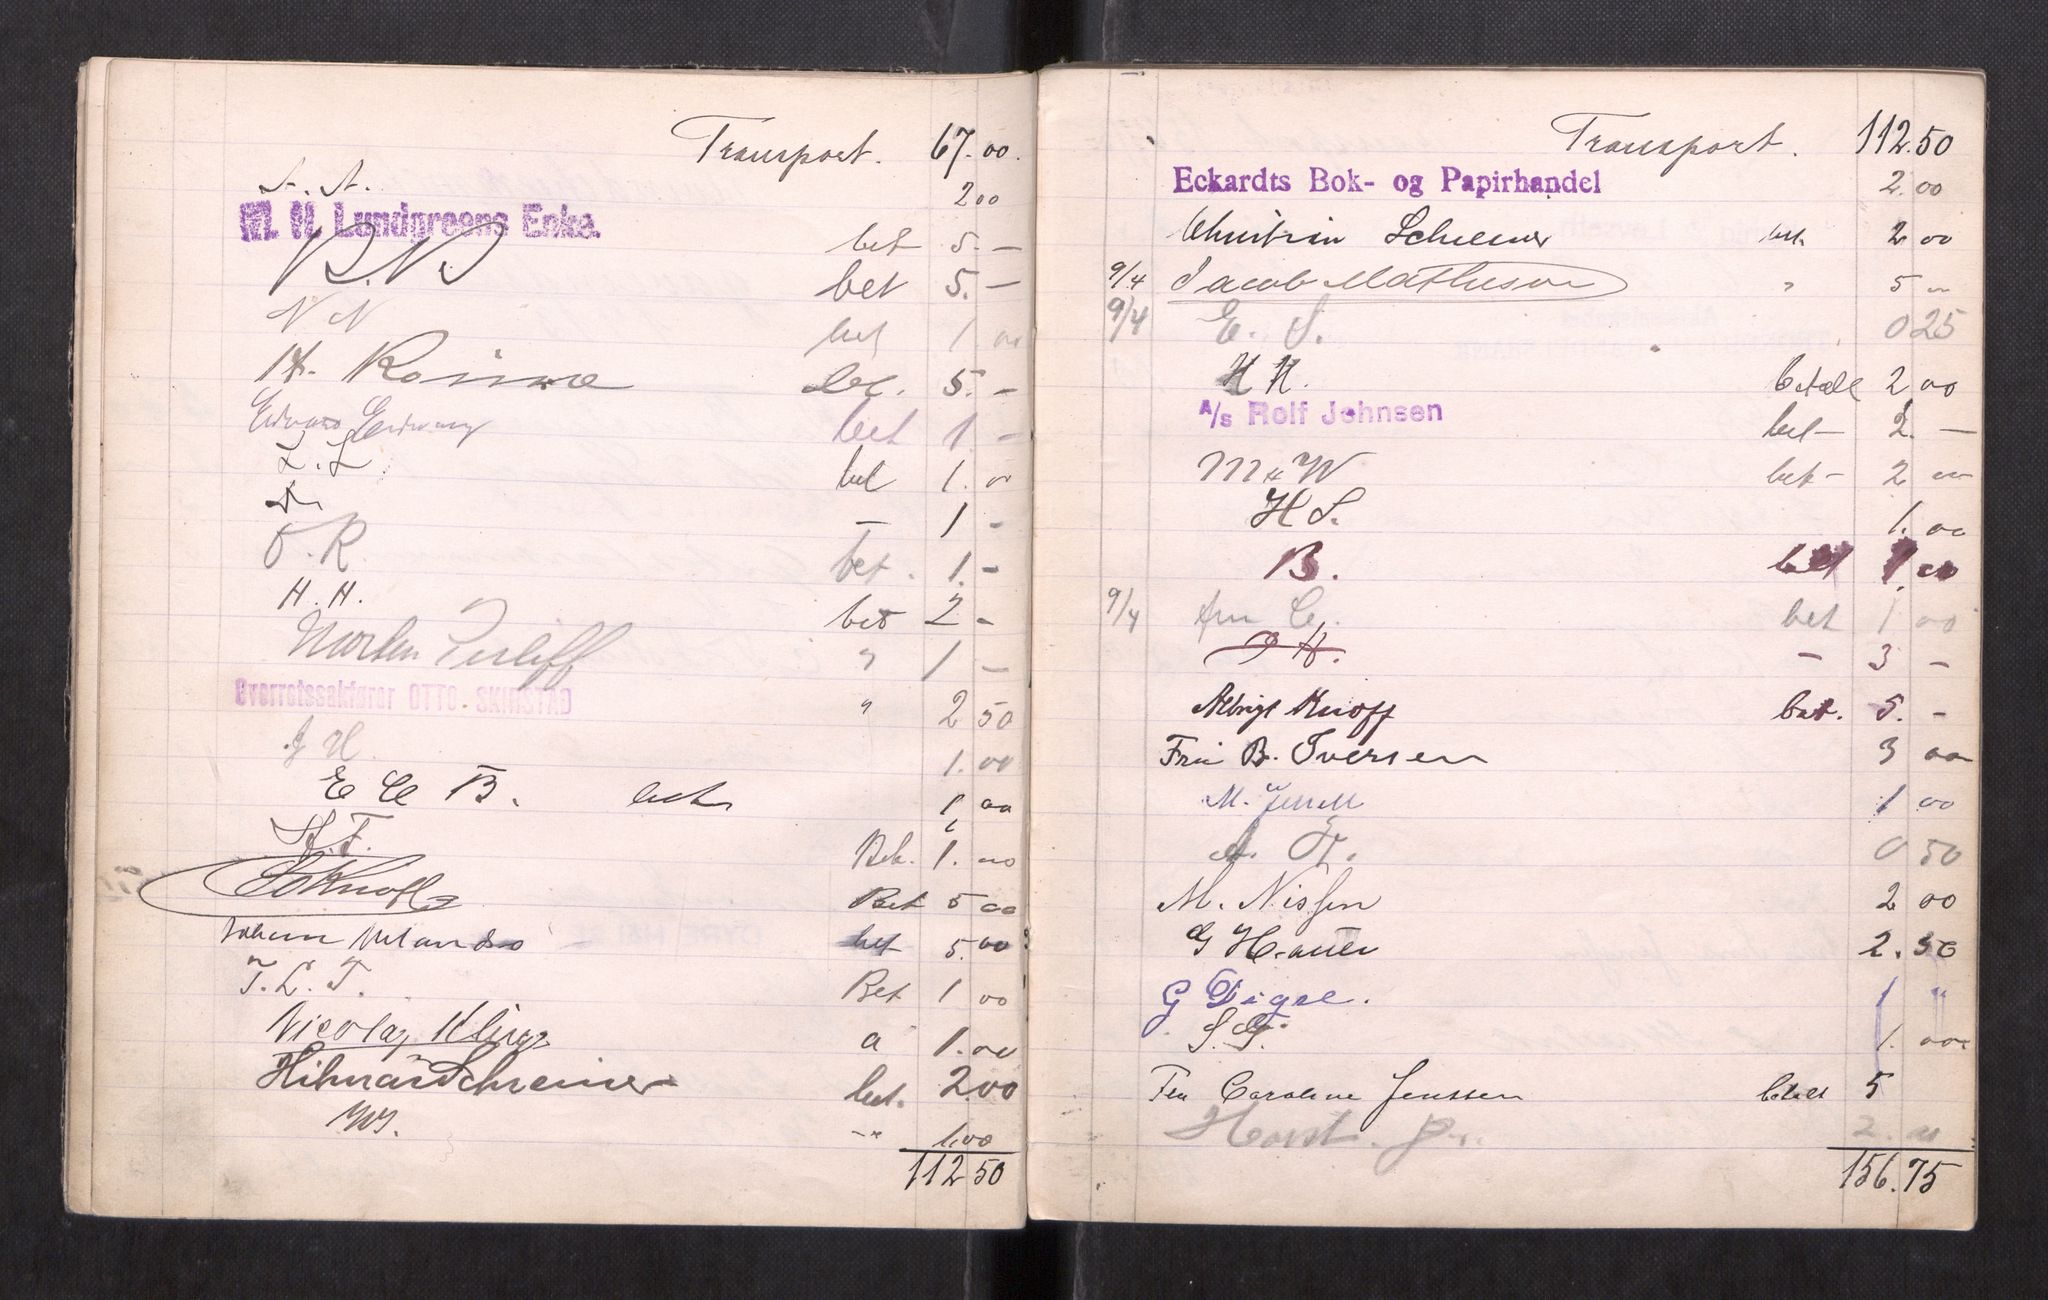 Transport. 67.00.
A. A. 2 00
M. H. Lundgreens Enke. bet 5. –
B. B. bet 5. –
N N bet 1. 00
5. –
bet 1 –
L. L. bet 1. 00
– 1 –
O. R. bet. 1. –
H. H. bet 2 –
Morten " 1 –
Overretssakfører OTTO SKIRSTAD " 2 50
J H. 1. 00
E C B. bet 1 00
A. F. Bet. 1. 00
Knoff Bet 5 00
bet 5. 00
T. L. T. Bet 1 00
Nicolay a 1. 00
Hilmar Schreiner bet. 2.00
1.00
112 50
Transport. 112.50
Eckardts Bok- og Papirhandel 2. 00
Christian Schreiner bet. 2 00
9/4 Jacob Matheson " 5 00
9/4 E. S. 0 25
H H. betalt 2 00
A/s Rolf Johnsen bet – 2. –
M & W bet – 2 00
H S. 1. 00
B. bet 1 00
9/4 C. bet 1 00
H. – 3 –
Albrigt Knoff bet. 5. –
B. Iversen 3 00
M. 1 00
A. 0 50
M. Nissen 2 00
G 2. 50
G Digre. 1 "
1. 00
Caroline Jenssen betalt 5
2. 00
156.75